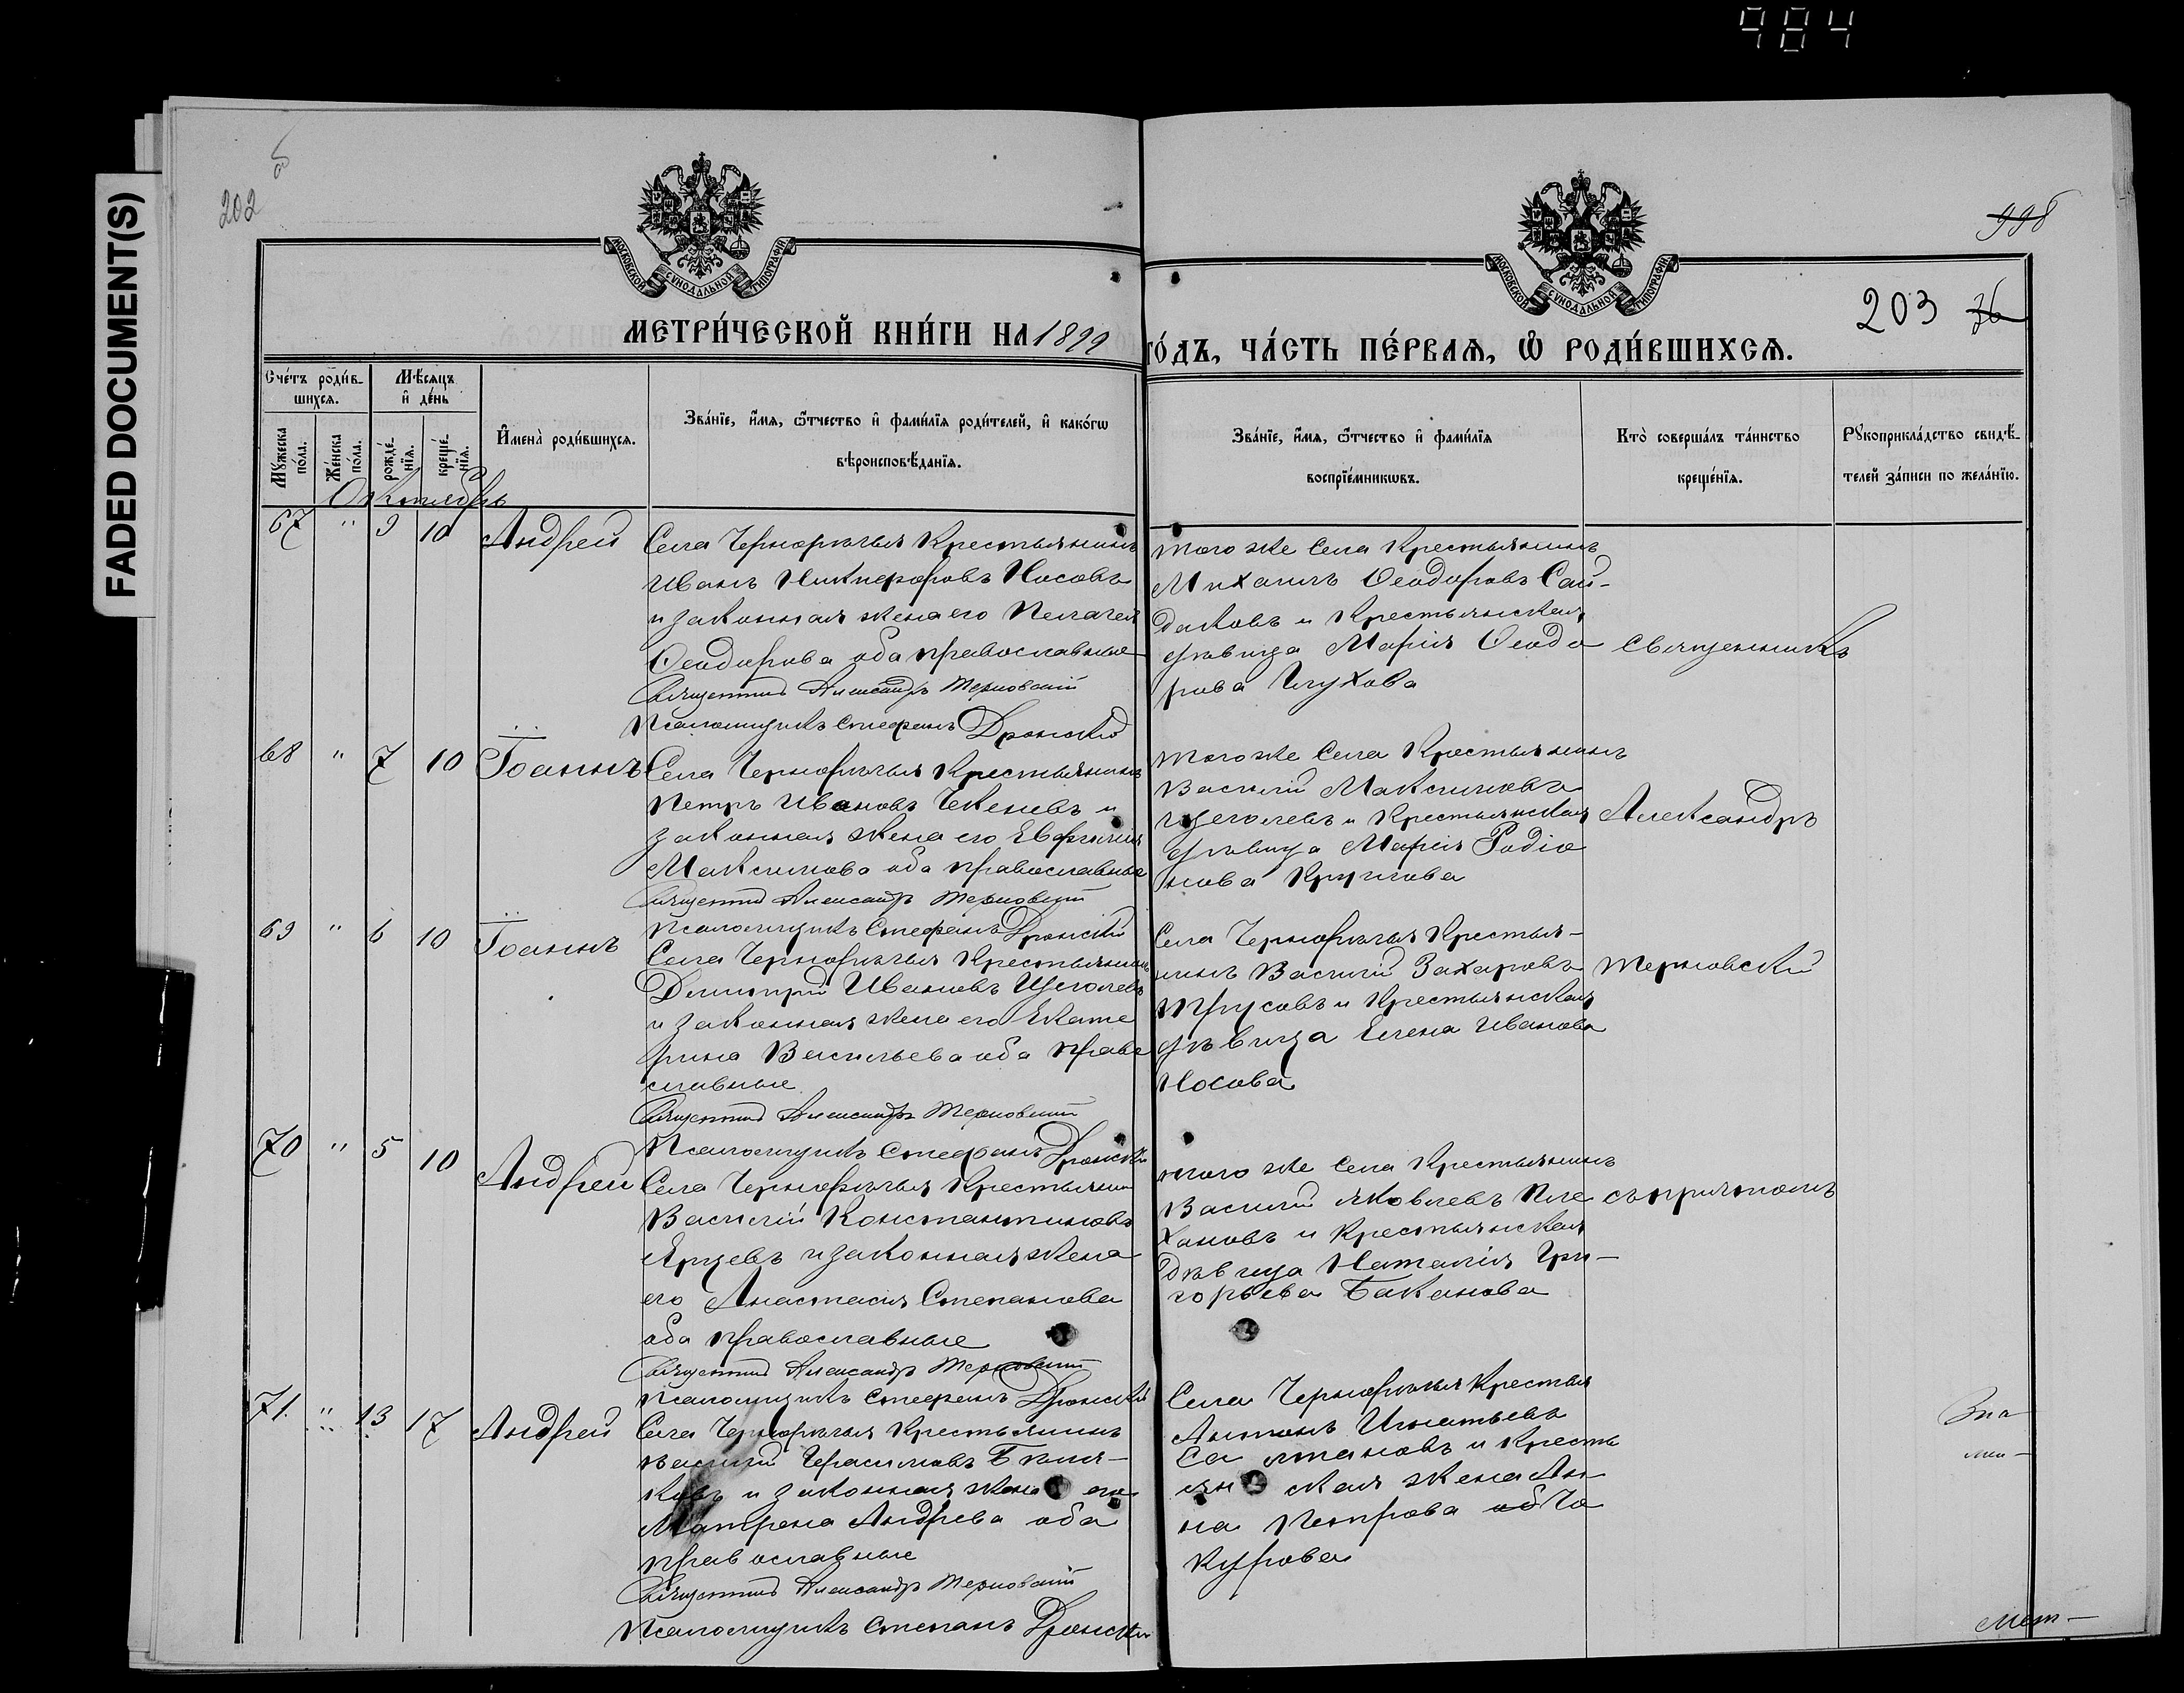 984
FADED DOCUMENT(S)
202
об
998
203 36
МОСКОВСКОЙ СУНОДАЛЬНОЙ ТИПОГРАФІИ
МОСКОВСКОЙ СУНОДАЛЬНОЙ ТИПОГРАФІИ
МЕТРИ́ЧЕСКОЙ КНИ́ГИ НА 1899
ГО́ДЪ, ЧА́СТЬ ПЕ́РВАѦ, Ѽ РОДИ́ВШИХСѦ.
Сче́тъ роди́в-
шихсѧ.
Мѣ́сѧцъ
и҆ де́нь
Мꙋ́жеска
по́ла.
Же́нска
по́ла.
рожде́-
нїѧ.
креще́-
нїѧ.
И҆мена̀ роди́вшихсѧ.
Зва́нїе, и҆́мѧ, ѻ҆́тчество и҆ фами́лїѧ роди́телей, и҆ како́гѡ
вѣроисповѣ́данїѧ.
Зва́нїе, и҆́мѧ, ѻ҆́тчество и҆ фами́лїѧ
воспрїе́мникѡвъ.
Кто̀ соверша́лъ та́инство
креще́нїѧ.
Рꙋкоприкла́дство свидѣ́-
телей за́писи по жела́нїю.
Октябрь
67 " 9 10 Андрей
Села Чернорѣчья Крестьянинъ
Иванъ Никифоровъ Носовъ
и законная жена его Пелагея
Ѳеодорова оба православные
Священникъ Александръ Терновскій
Псаломщикъ Стефанъ Дронскій
того же Села Крестьянинъ
Михаилъ Ѳеодоровъ Сай-
даковъ и Крестьянская
дѣвица Марія Ѳеодо
рова Глухова
Священникъ
68 " 7 10 Іоаннъ
Села Чернорѣчья Крестьянинъ
Петръ Ивановъ Чекеневъ и
законная жена его Евфимія
Максимова оба православные
Священникъ Александръ Терновскій
Псаломщикъ Стефанъ Дронскій
того же Села Крестьянинъ
Василій Максимовъ
Щеголевъ и Крестьянская
дѣвица Марія Родіо
нова Круглова
Александръ
69 " 6 10 Іоаннъ
Села Чернорѣчья Крестьянинъ
Димитрій Ивановъ Щеголевъ
и законная жена его Екате
рина Васильева оба право
славные
Священникъ Александръ Терновскій
Псаломщикъ Стефанъ Дронскій
Села Чернорѣчья Крестья-
нинъ Василій Захаровъ
Трусовъ и Крестьянская
дѣвица Елена Иванова
Носова
Терновскій
70 " 5 10 Андрей
Села Чернорѣчья Крестьянинъ
Василій Константиновъ
и законная жена
его Анастасія Степанова
оба православные
Священникъ Александръ Терновскій
Псаломщикъ Стефанъ Дронскій
того же Села Крестьянинъ
Василій Яковлевъ Пле
хановъ и Крестьянская
дѣвица Наталія Гри-
горьева Баканова
съ причтомъ
71. " 13 17 Андрей
Села Чернорѣчья Крестьянинъ
Василій Герасимовъ Бѣля-
ковъ и законная жена его
Матрена Андреева оба
православные
Священникъ Александръ Терновскій
Псаломщикъ Степанъ Дронскій
Села Чернорѣчья Крестья
Антонъ Игнатьевъ
и Кресть
ян ская жена Ан
на Петрова
курова
Мет-